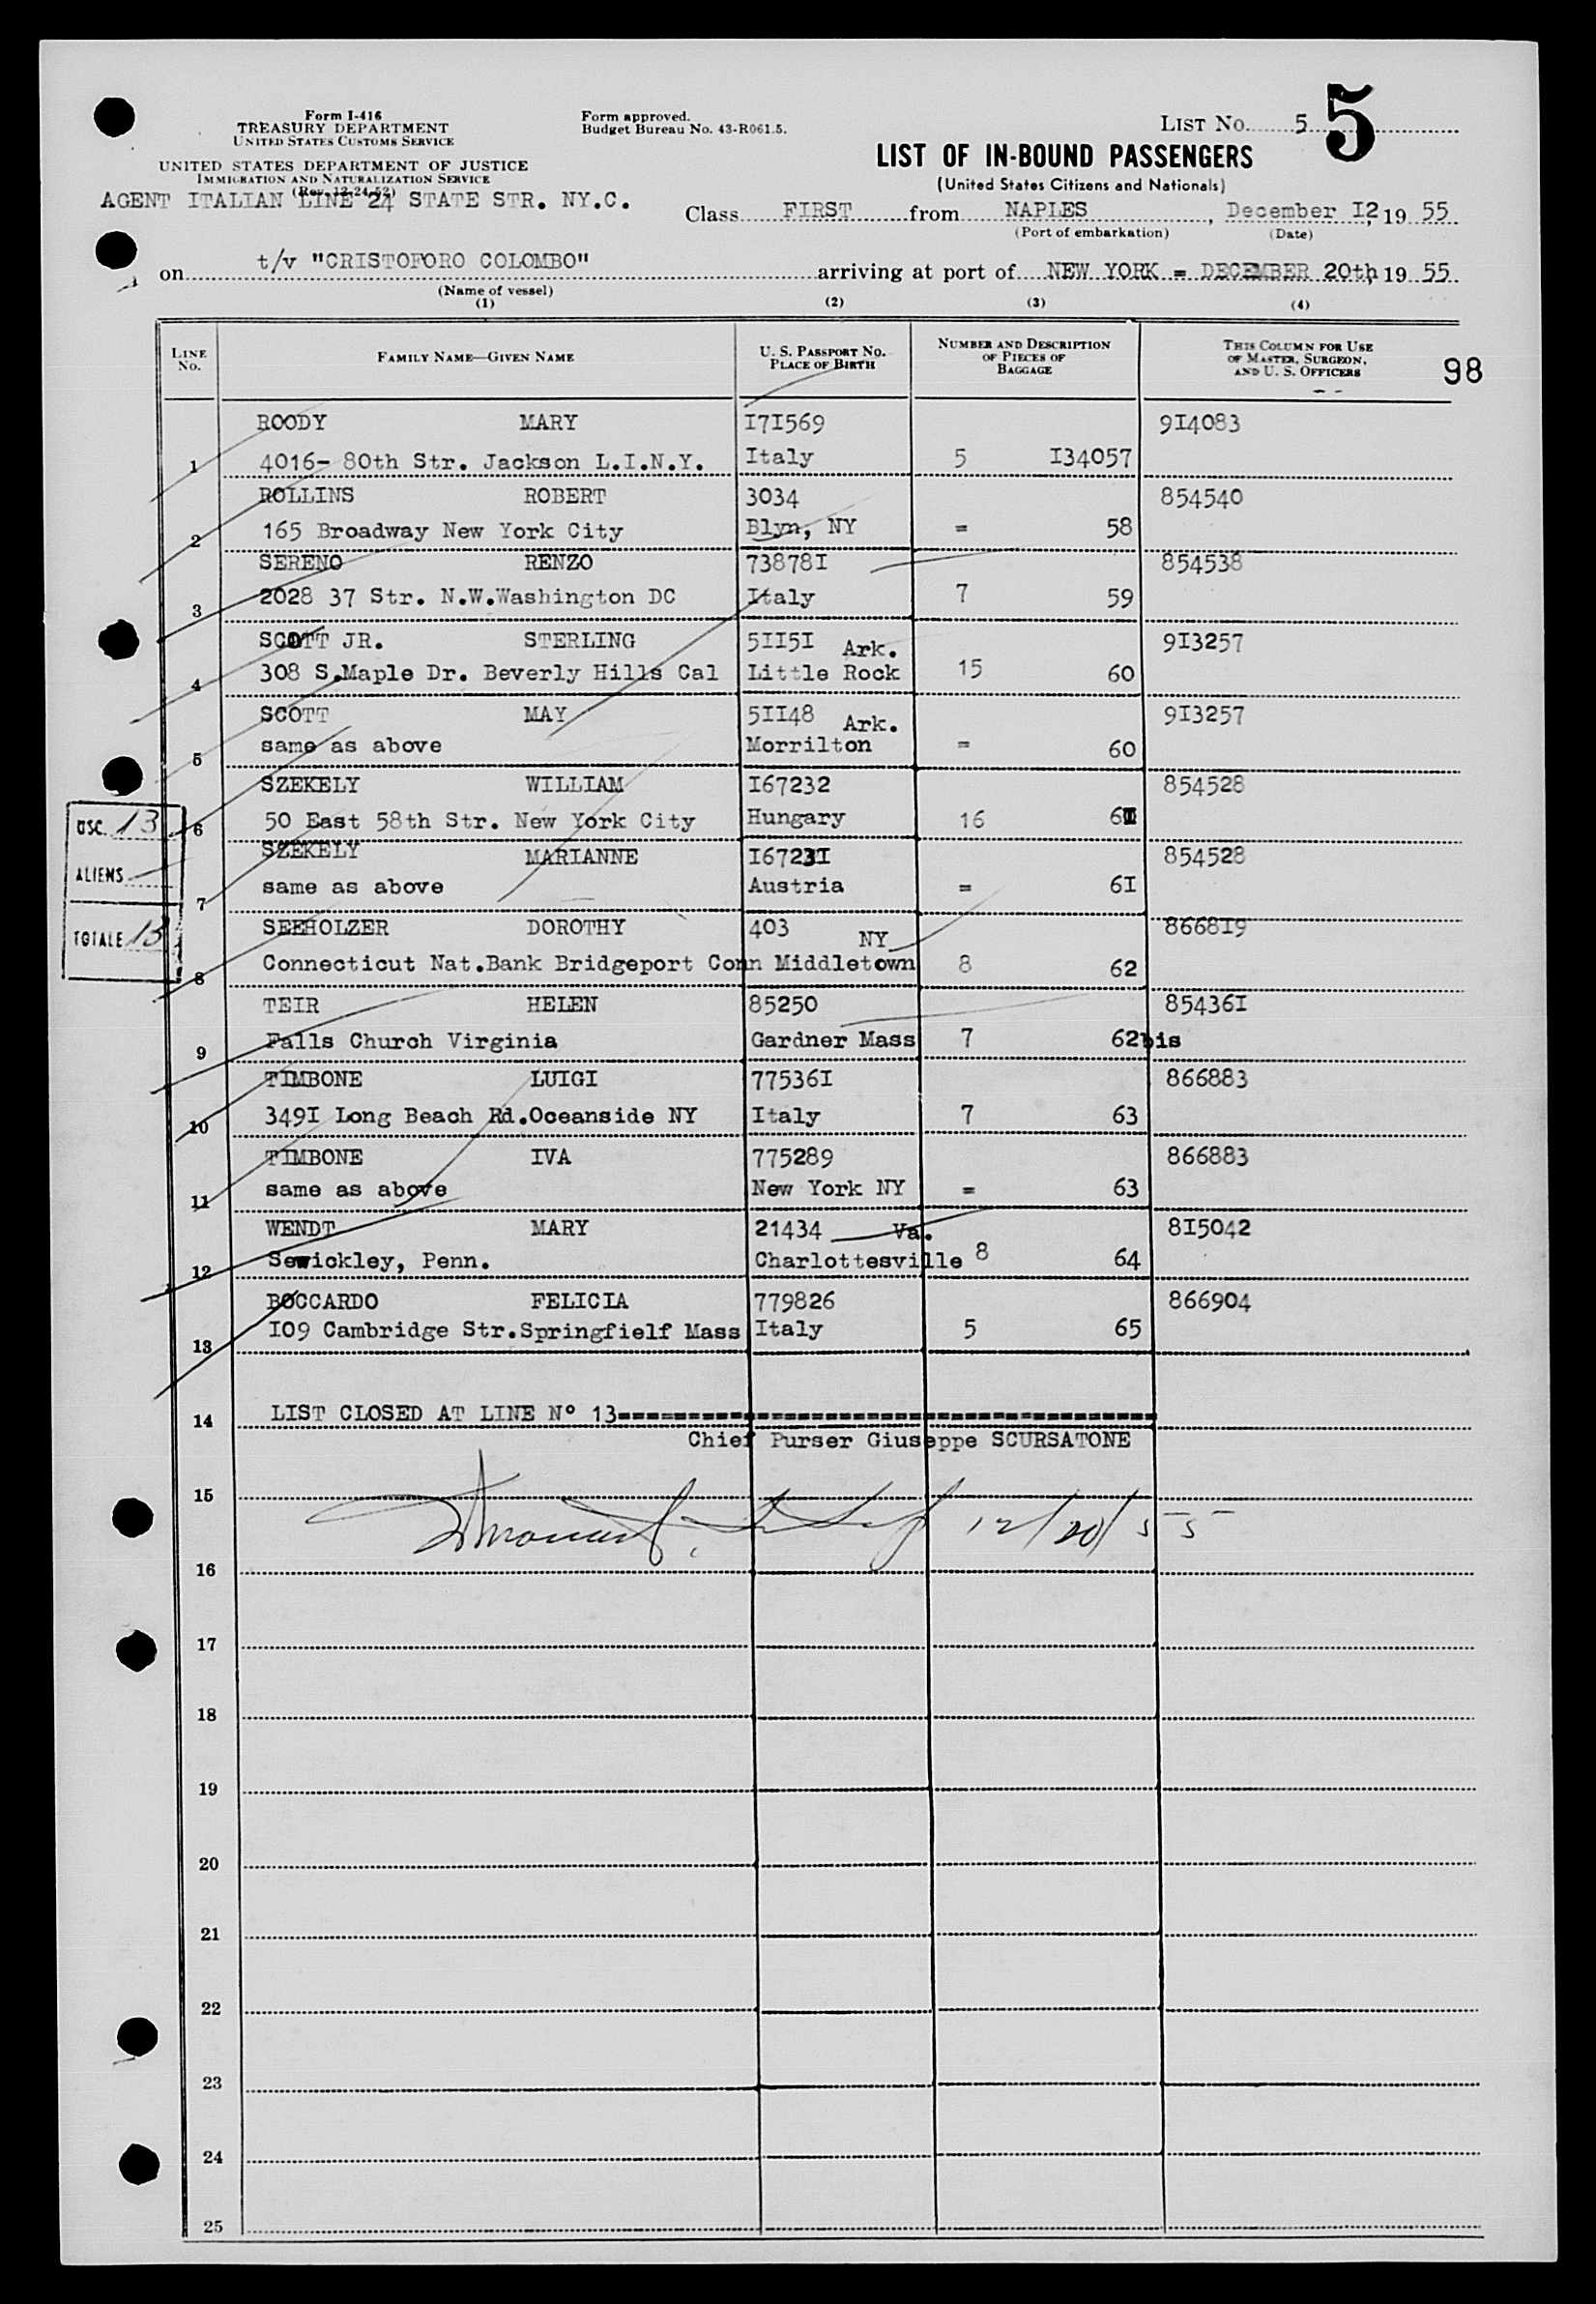 Form I-416
TREASURY DEPARTMENT
UNITED STATES CUSTOMS SERVICE
UNITED STATES DEPARTMENT OF JUSTICE
IMMIGRATION AND NATURALIZATION SERVICE
(Rev. 12-24-52)
AGENT ITALIAN LINE 24 STATE STR. NY.C.
Form approved.
Budget Bureau No. 43-R061.5.
LIST No. 5 5
LIST OF IN-BOUND PASSENGERS
(United States Citizens and Nationals)
Class FIRST from NAPLES, December I2, 19 55
(Port of embarkation) (Date)
on t/v "CRISTOFORO COLOMBO" arriving at port of NEW YORK = DECEMBER 20th, 19 55
(Name of vessel)
(1) (2) (3) (4)
LINE No. FAMILY NAME—GIVEN NAME U. S. PASSPORT No. PLACE OF BIRTH NUMBER AND DESCRIPTION OF PIECES OF BAGGAGE THIS COLUMN FOR USE OF MASTER, SURGEON, AND U. S. OFFICERS 98
ROODY MARY I7I569 9I4083
1 4016- 80th Str. Jackson L.I.N.Y. Italy 5 I34057
ROLLINS ROBERT 3034 854540
2 165 Broadway New York City Blyn, NY = 58
SERENO RENZO 73878I 854538
3 2028 37 Str. N.W.Washington DC Italy 7 59
SCOTT JR. STERLING 5II5I Ark. 9I3257
4 308 S.Maple Dr. Beverly Hills Cal Little Rock 15 60
SCOTT MAY 5II48 Ark. 9I3257
5 same as above Morrilton = 60
SZEKELY WILLIAM I67232 854528
6 50 East 58th Str. New York City Hungary 16 6I
SZEKELY MARIANNE I6723I 854528
7 same as above Austria = 6I
SEEHOLZER DOROTHY 403 NY 8668I9
8 Connecticut Nat.Bank Bridgeport Conn Middletown 8 62
TEIR HELEN 85250 85436I
9 Falls Church Virginia Gardner Mass 7 62bis
TIMBONE LUIGI 77536I 866883
10 349I Long Beach Rd.Oceanside NY Italy 7 63
TIMBONE IVA 775289 866883
11 same as above New York NY = 63
WENDT MARY 21434 Va. 8I5042
12 Sewickley, Penn. Charlottesville 8 64
BOCCARDO FELICIA 779826 866904
13 I09 Cambridge Str.Springfielf Mass Italy 5 65
USC. 13
ALIENS
TOTALE 13
14 LIST CLOSED AT LINE N° 13
Chief Purser Giuseppe SCURSATONE
15
12/20/55
16
17
18
19
20
21
22
23
24
25